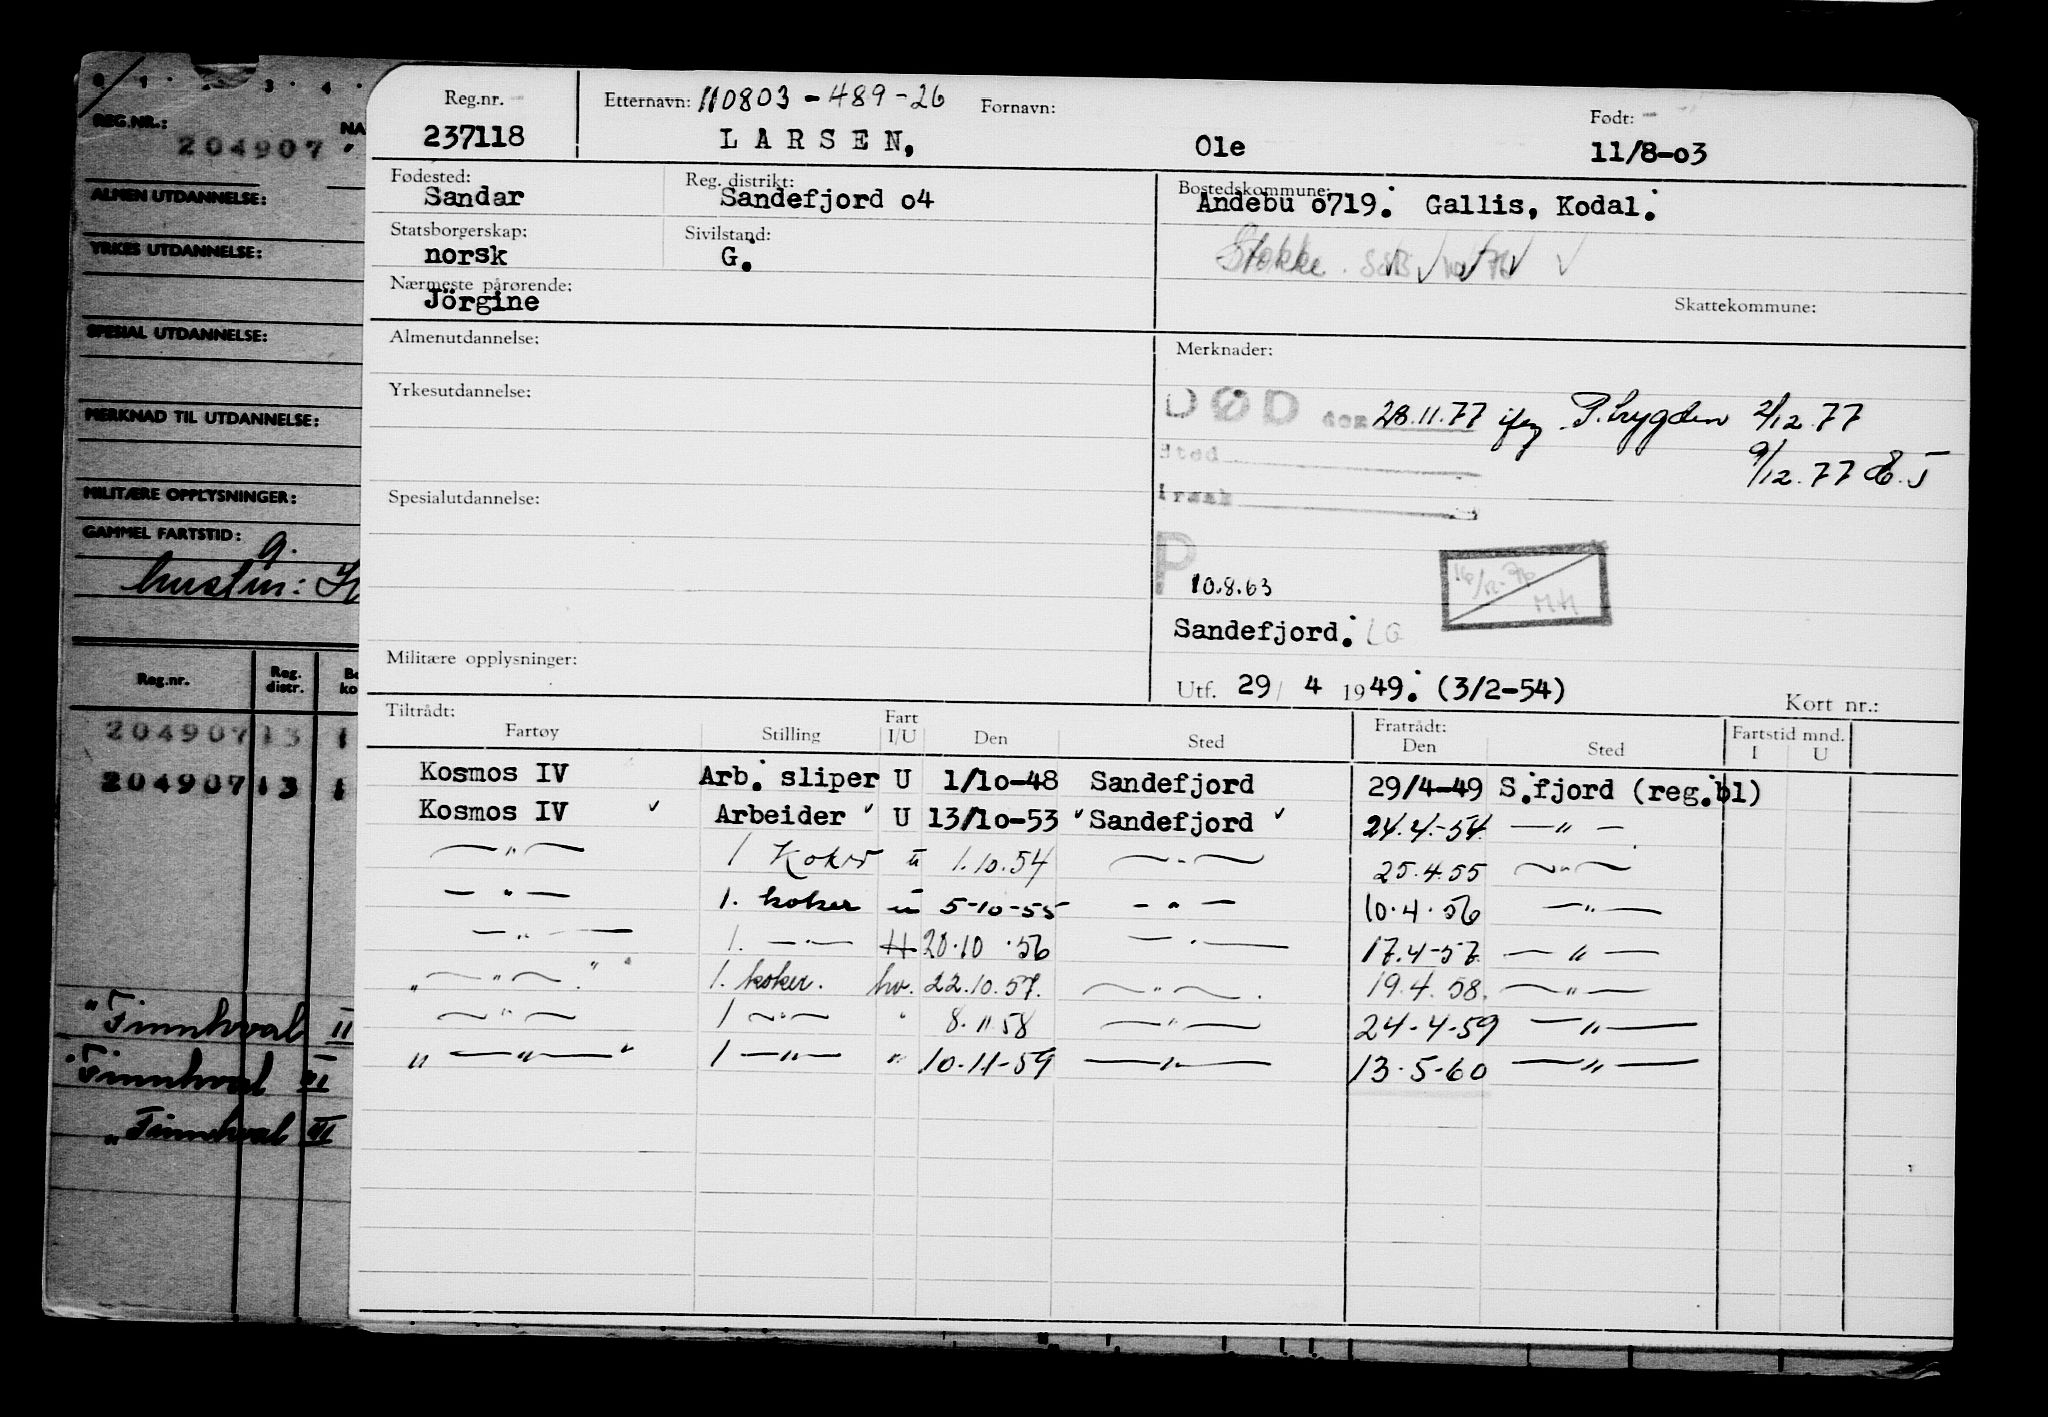 0 1 3 4
REG.NR.: NA
204907
ALMEN UTDANNELSE:
YRKES UTDANNELSE:
SPESIAL UTDANNELSE:
MERKNAD TIL UTDANNELSE:
MILITÆRE OPPLYSNINGER:
GAMMEL FARTSTID:
g.
hustru:
Reg.nr. Reg. distr. Bo ko
204907 13 1
204907 13 1
" Finnhval II
" Finnhval III
" Finnhval III
Reg.nr. Etternavn: 110803-489-26 Fornavn: Født:
237118 LARSEN, Ole 11/8-o3
Fødested: Reg. distrikt: Bostedskommune:
Sandar Sandefjord o4 Andebu o719. Gallis, Kodal.
Statsborgerskap: Sivilstand:
norsk G. Stokke.
Nærmeste pårørende: Skattekommune:
Jörgine
Almenutdannelse: Merknader:
Yrkesutdannelse:
DØD den 28.11.77 iføg P. trygden 2/12.77
Sted 9/12.77
Årsak
Spesialutdannelse:
P
10.8.63
Sandefjord. LG
Militære opplysninger:
Utf. 29/ 4 1949. (3/2-54) Kort nr.:
Tiltrådt: Fart Fratrådt: Fartstid mnd.
Fartøy Stilling I/U Den Sted Den Sted I U
Kosmos IV Arb. sliper U 1/1o-48 Sandefjord 29/4-49 S.fjord (reg.bl)
Kosmos IV ✓ Arbeider ✓ U 13/1o-53 ✓ Sandefjord ✓ 24.4.-54. —"—
—"— 1 Koker u 1.10.54 —"— 25.4.55 —"—
—"— 1. koker u 5-10-55 —"— 10.4.56 —"—
—"— 1. —"— H 20.10.56 —"— 17.4-57. —"—
" —"—. 1. koker. hv. 22.10.57. —"—. 19.4.58. —"—
—"— 1 —"— " 8.11 58 —"— 24-4-59 —"—
" —"— 1 —"— " 10.11-59 —"— 13.5-60 —"—